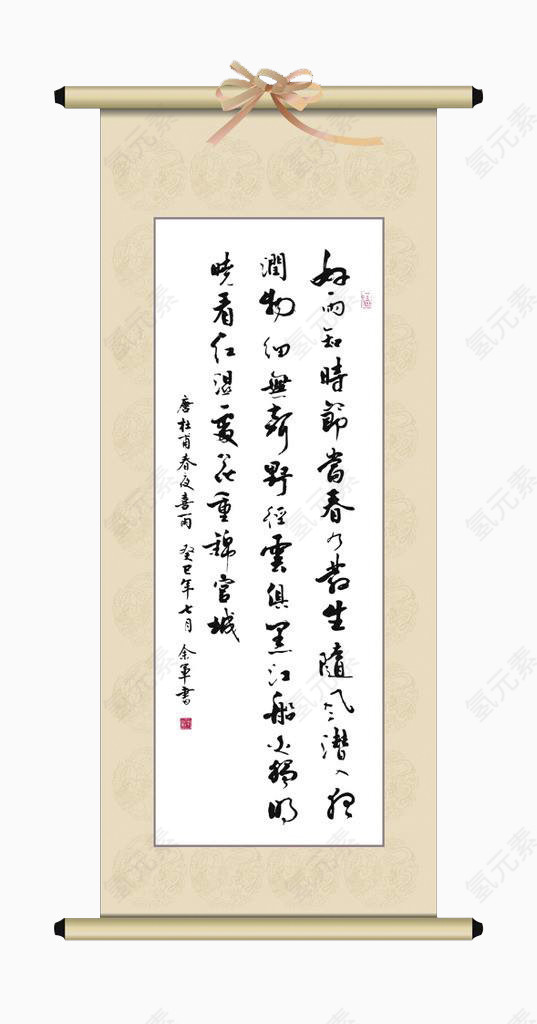 好雨知時節當春乃發生隨風潛入夜
潤物細無聲野徑雲俱黑江船火獨明
曉看紅濕處花重錦官城
唐杜甫春夜喜雨 癸巳年七月 余軍書
氢元素